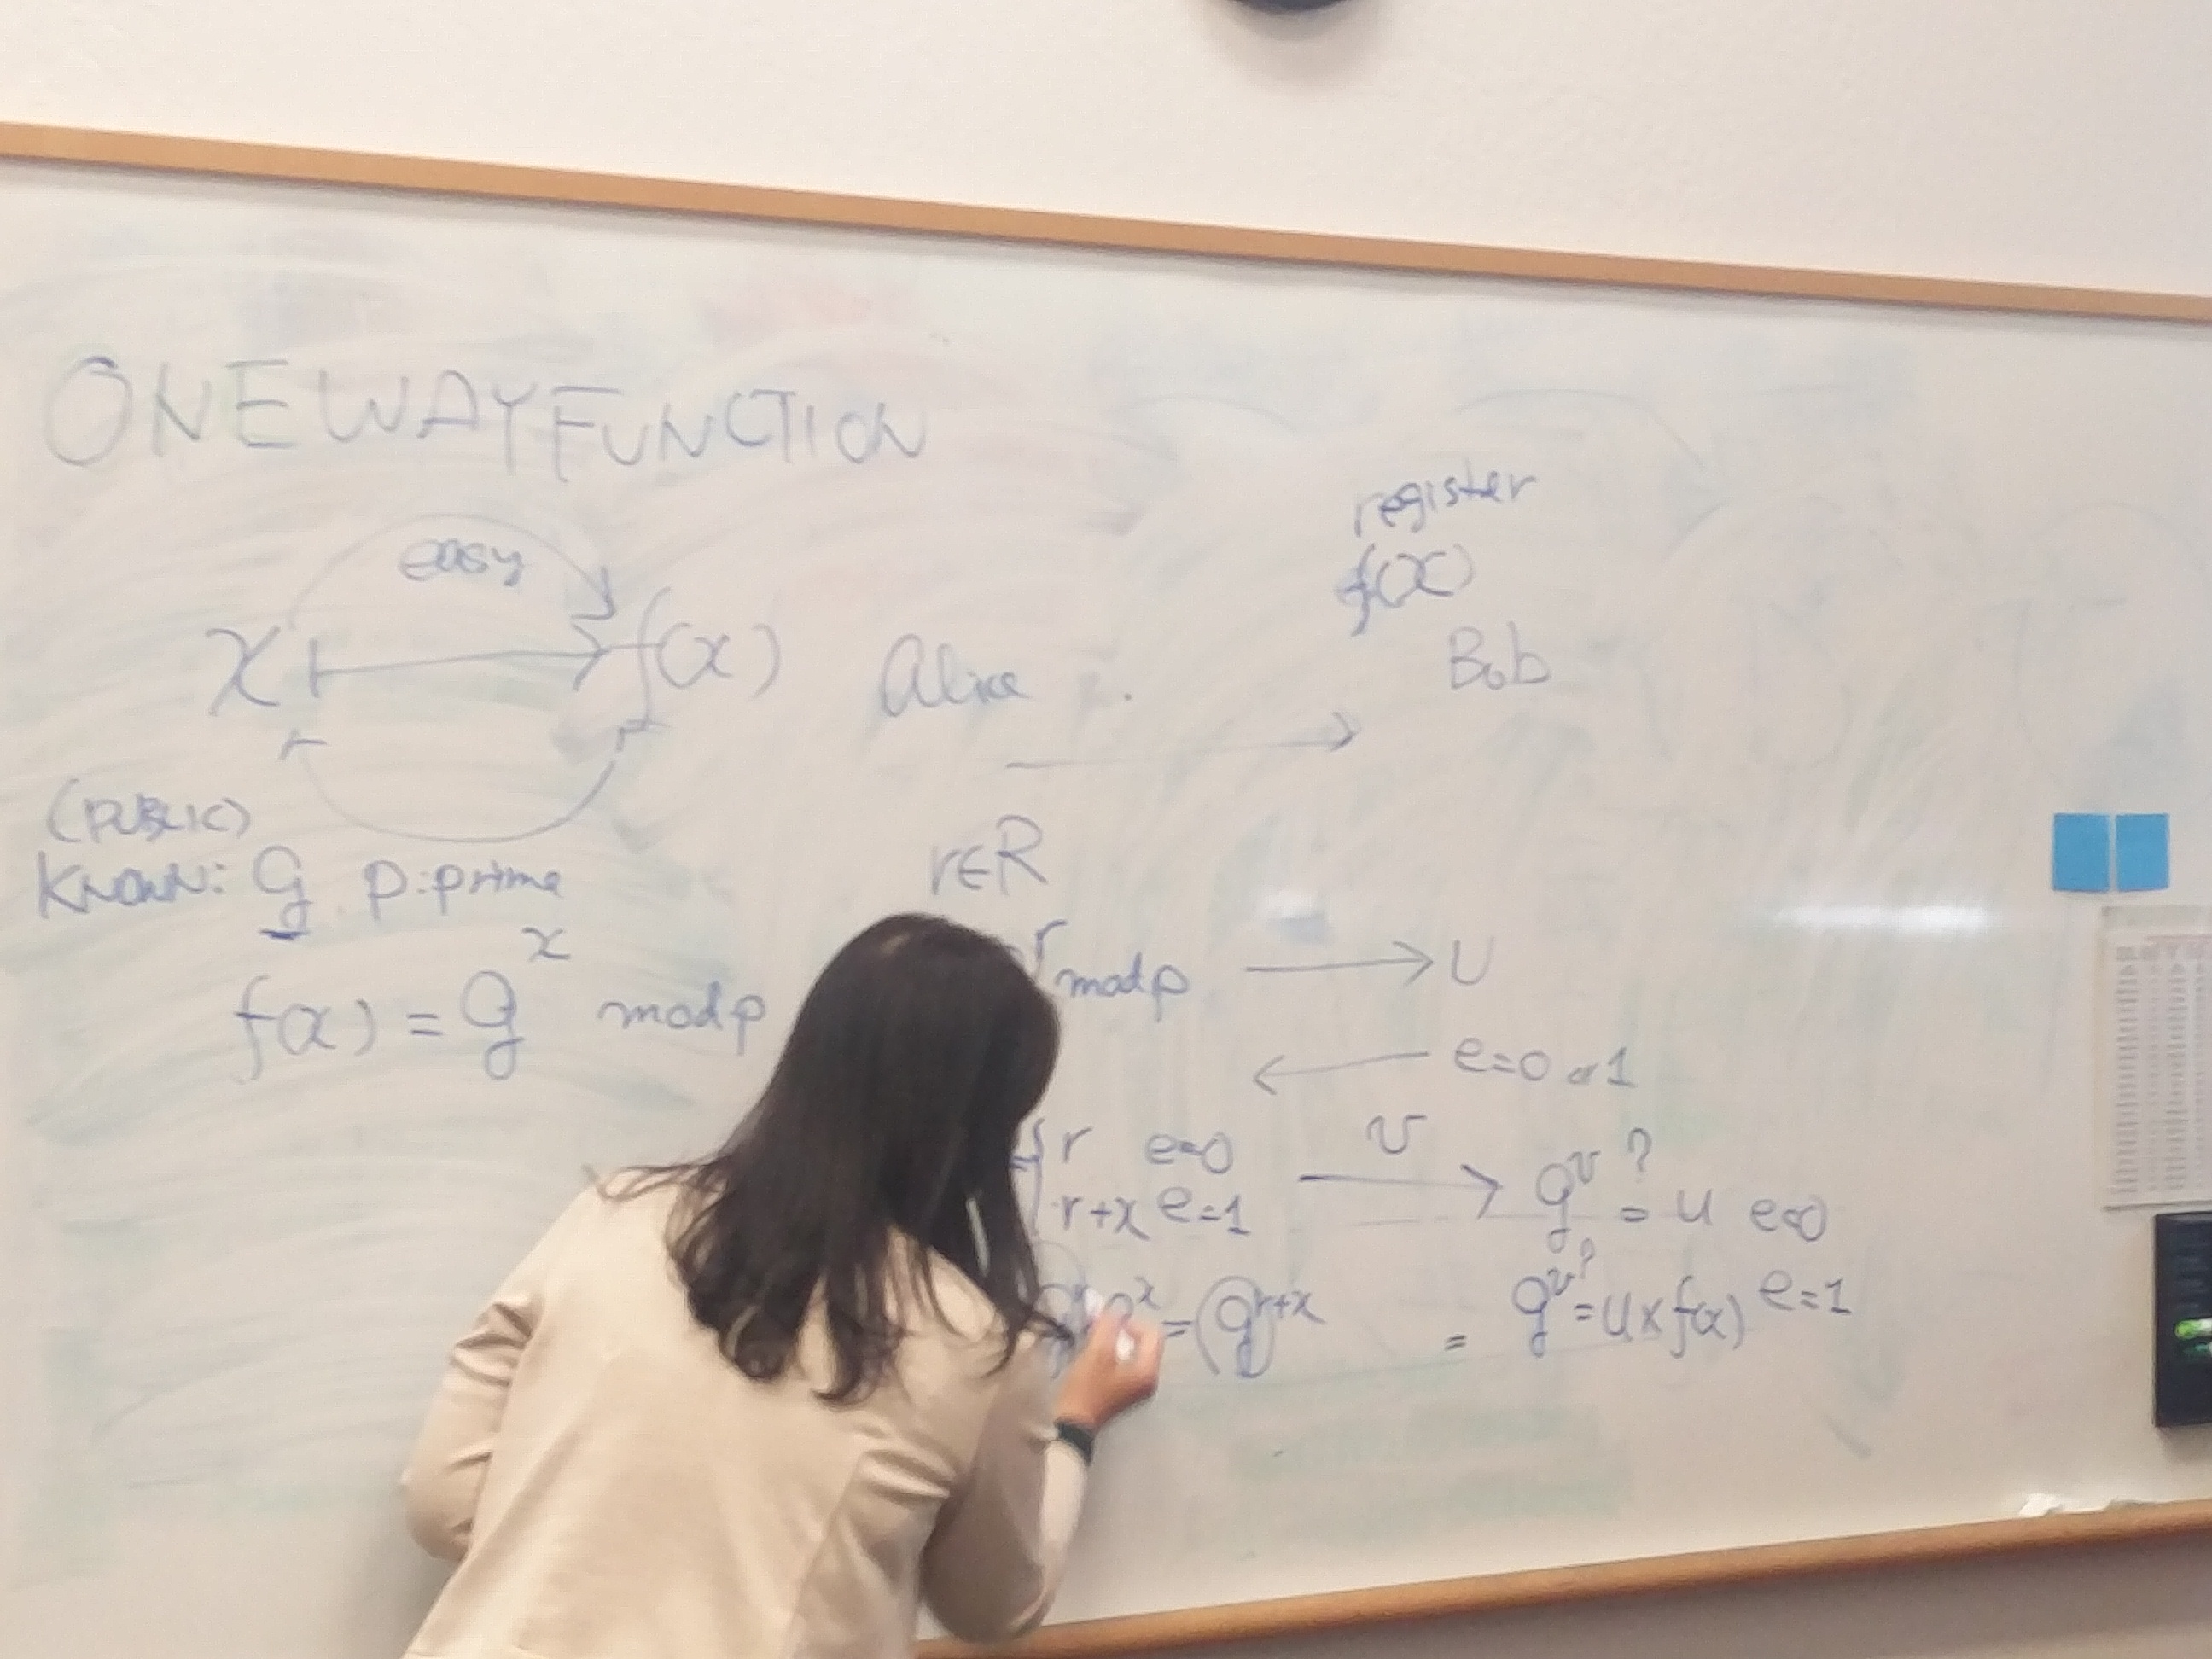 ONE WAY FUNCTION
easy
x ↦ f(x)
(PUBLIC)
KNOWN: g p:prime
f(x) = g^x mod p
register
f(x)
Alice
Bob
r∈R
r mod p → U
← e=0 or 1
r e=0
r+x e=1
v →
g^v ?= u e=0
g^x = g^r+x
= g^v ?= u x f(x) e=1